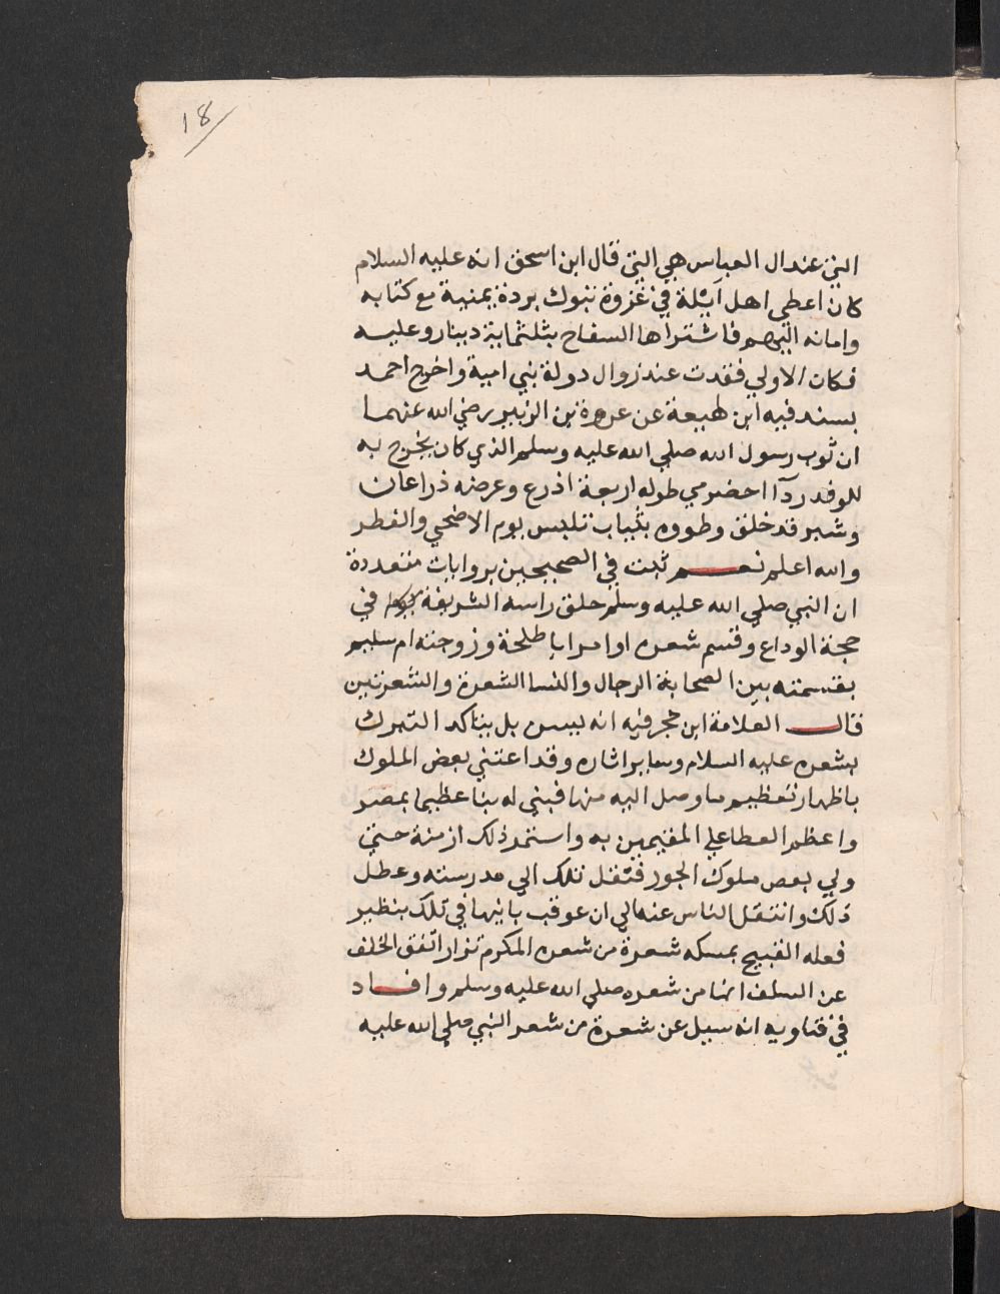 18
التي عند ال العباس هي التي قال ابن اسحق انه عليه السلام
كان اعطي اهل آيئلة في غزوة تبوك بردة يمنية مع كتابه
وامانه اليهم فاشتراها السفاح بثلثماية دينار وعليه
فكان الاولي فقدت عند زوال دولة بني امية واخرج احمد
بسند فيه ابن لهيعة عن عروة بن الزبير رضي الله عنهما
ان ثوب رسول الله صلي الله عليه وسلم الذي كان يخرج به
للوفد ردآا حضرمي طوله اربعة اذرع وعرضه ذراعان
وشبر قد خلق وطووه بثياب تلبس يوم الاضحي والفطر
والله اعلم نعم ثبت في الصحيحين بروايات متعددة
ان النبي صلي الله عليه وسلم حلق راسه الشريفة في
حجة الوداع وقسم شعره او امر ابا طلحة وزوجته ام سليم
بقسمته بين الصحابة الرجال والنسا الشعرة والشعرتين
قال العلامة ابن حجر فيه انه ليس بل يتاكد التبرك
بشعره عليه السلام وساير اثاره وقد اعتني بعض الملوك
باظهار تعظيم ما وصل اليه منها فبني له بنا عظيما بمصر
واعظم العطا علي المقيمين به واستمر ذلك ازمنة حتي
ولي بعض ملوك الجور فنقل تلك الي مدرسته وعطل
ذلك وانتقل الناس عنه الي ان عوقب بانها في تلك بنظير
فعله القبيح بمسكه شعرة من شعره المكرم تزار اتفق الخلف
عن السلف انها من شعره صلي الله عليه وسلم وافاد
في فتاويه انه سيل عن شعرة من شعر النبي صلي الله عليه